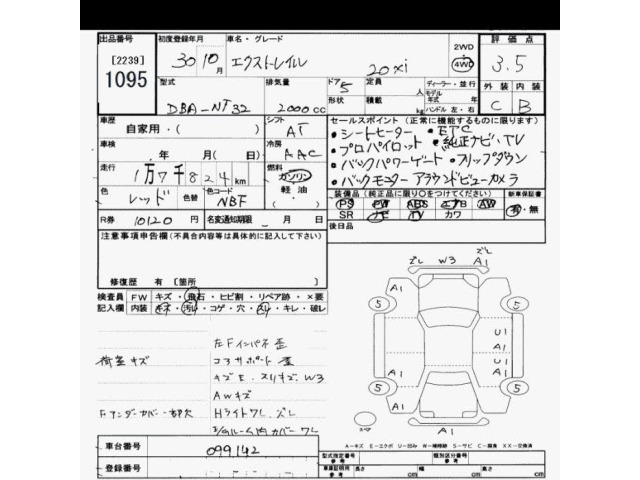 出品番号
[2239]
1095
初度登録年月
30年 10月
車名・グレード
エクストレイル 20xi
2WD
4WD
評価点
3.5
外装 内装
C B
型式
DBA-NT32
排気量
2000cc
ドア
5
形状
定員
積載
kg
ディーラー・並行
モデル年式 年
ハンドル 左・右
車歴
自家用・(
シフト
AT
車検
年 月( 日)
冷房
AAC
走行
1万7千824km
燃料
ガソリン
軽油
色
レッド
色替
色コード
NBF
R券
10120円
名変通知期限
月 日
セールスポイント (正常に機能するものに限ります)
・シートヒーター ・ETC
・プロパイロット ・純正ナビ・TV
・バックパワーゲート ・フリップダウン
・バックモニター アラウンドビューカメラ
装備品 (純正品に限り○をつけてください)
新車保証書
PS PW ABS エアB AW
有・無
SR ナビ TV カワ
後日品
注意事項申告欄(不具合内容等は具体的に記入して下さい)
修復歴 有 [箇所 ]
検査員 FW キズ・飛石・ヒビ割・リペア跡・×要
記入欄 内装 キズ・汚レ・コゲ・穴・スレ・キレ・破レ
左Fインパネ歪
コアサポート歪
荷室キズ
キズE、スリキズ、W3
AWキズ
Fアンダーカバー一部欠
Hライトワレ、ズレ
カバーワレ
ズレ W3 ズレ A1
A1
5 5
U1
A1
U1
A1
5 5
A1 A1
A1
スペア
A-キズ E-エクボ U-凹み W-補修跡 S-サビ C-腐食 XX-交換済
車台番号
099142
登録番号
型式指定番号
参考
類別区分番号
参考
車庫証明用
参考
長さ cm 幅 cm 高さ cm